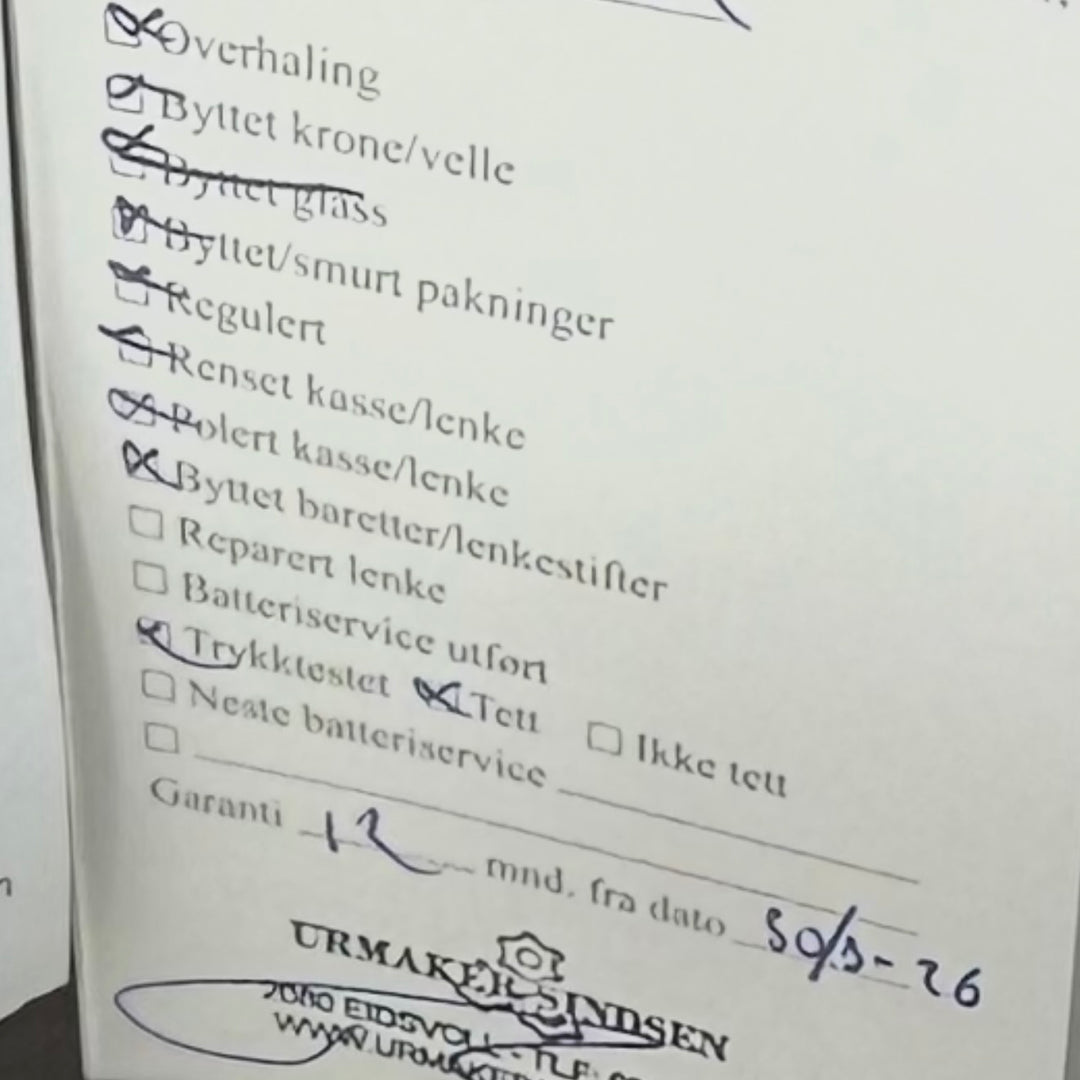 Overhaling
Byttet krone/velle
Byttet glass
Byttet/smurt pakninger
Regulert
Renset kasse/lenke
Polert kasse/lenke
Byttet baretter/lenkestifter
Reparert lenke
Batteriservice utført
Trykktestet Tett Ikke tett
Neste batteriservice
Garanti 12 mnd. fra dato -26
URMAKER SINDSEN
2080 EIDSVOLL - TLF: